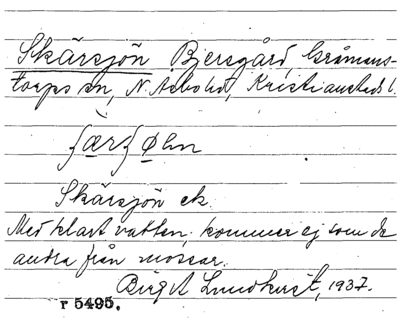 Skärsjön Bjersgård, Gråmans-
torps sn, N. Åsbo hd, Kristianstads l.
ʃæ̱rʃø̱hn
Skärsjön ek.
Med klart vatten, kommer ej som de
andra från mossar.
Birgit Lundkvist, 1937.
r 5495.